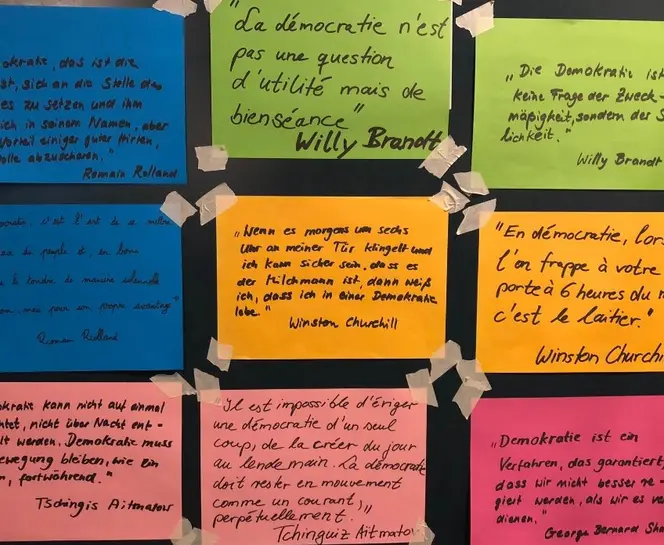 okratie, das ist die
st, sich an die Stelle des
es zu setzen und ihm
ich in seinem Namen, aber
Vorteil einiger guter Hirten,
olle abzuscheren."
Romain Rolland
"La démocratie n'est
pas une question
d'utilité mais de
bienséance"
Willy Brandt
„Die Demokratie ist
keine Frage der Zweck-
mäßigkeit, sondern der S
lichkeit."
Willy Brandt
c'est l'art de se mettre
du peuple et, en bonne
de tondre de manière solennelle
pour son propre avantage"
Romain Rolland
„Wenn es morgens um sechs
Uhr an meiner Tür klingelt und
ich kann sicher sein, dass es
der Milchmann ist, dann weiß
ich, dass ich in einer Demokratie
lebe."
Winston Churchill
"En démocratie, lors
l'on frappe à votre
porte à 6 heures du m
c'est le laitier."
Winston Churchi
okratie kann nicht auf einmal
htet, nicht über Nacht ent-
lt werden. Demokratie muss
ewegung bleiben, wie ein
, fortwährend."
Tschingis Aitmatow
"Il est impossible d'ériger
une démocratie d'un seul
coup, de la créer du jour
au lendemain. La démocratie
doit rester en mouvement
comme un courant,
perpétuellement."
Tchinguiz Aïtmatov
„Demokratie ist ein
Verfahren, das garantiert,
dass wir nicht besser re-
giert werden, als wir es ve
dienen."
George Bernard Sha